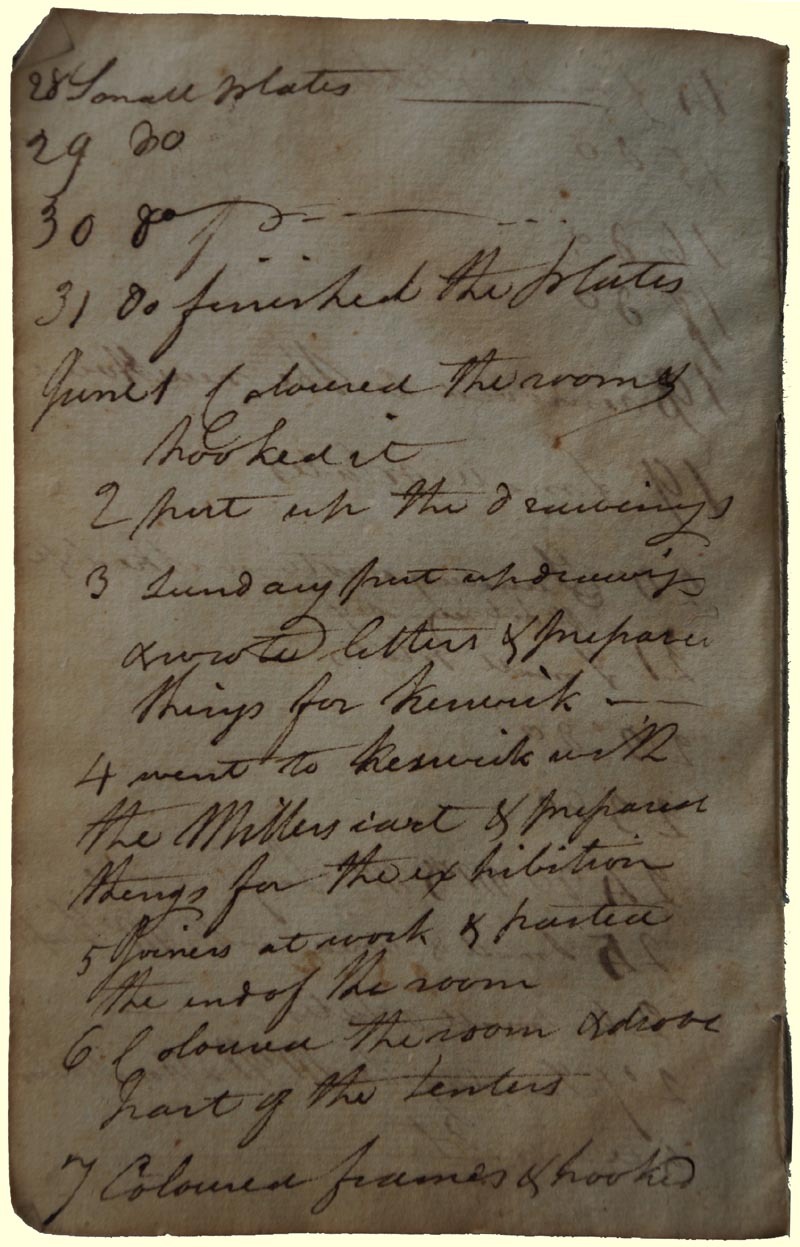 28 Small plates
29 Do
30 Do
31 Do finished the plates
June 1 Coloured the room &
hooked it
2 put up the drawings
3 Sunday put up drawings
& wrote letters & prepare
things for Keswick
4 went to Keswick with
the Millers cart & prepared
things for the exhibition
5 Joiners at work & pasted
the end of the room
6 Coloured the room & drove
part of the tenters
7 Coloured frames & hooked